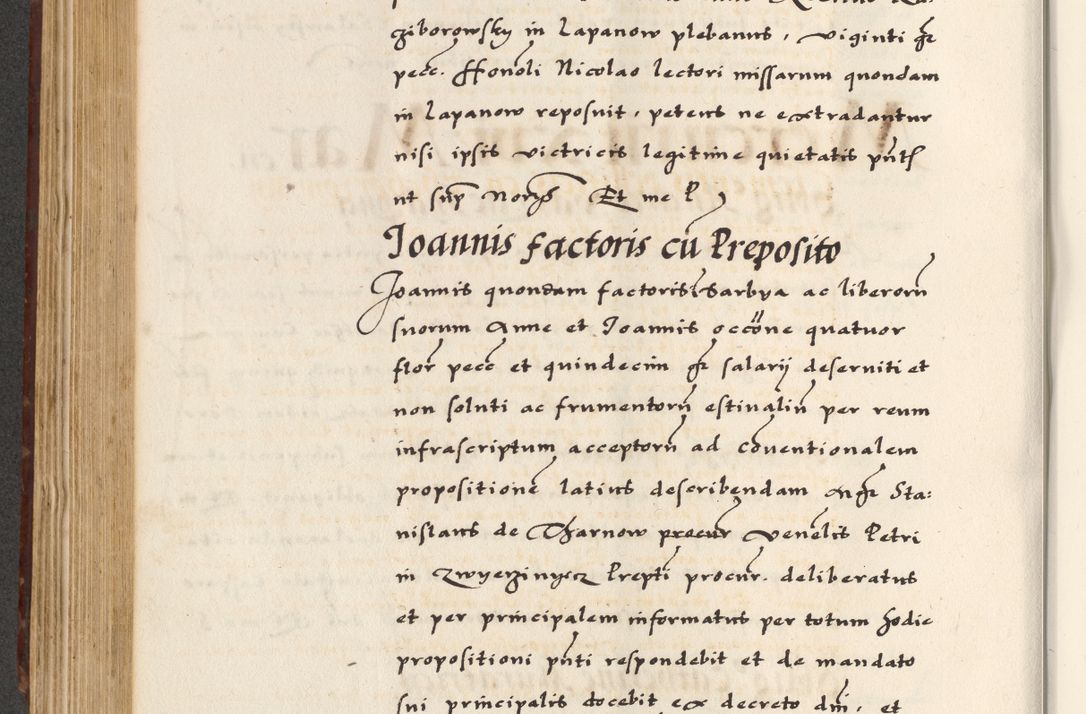 giborowsky in Lapanow plebanus, viginti gr̃
pecc. Honoli Nicolao lectori missarum quondam
in Lapanow reposuit, petens ne extradantur
nisi ipsis victricis legitime quietatis pn̄t
ut sup̄ Et me P
Joannis factoris cū Preposito
Joannis quondam factoris i Sarbya ac liberorū
suorum Anne et Joannis occōne quatuor
flor̄ pecc̄ et quindecim gr̃ salarij deserviti et
non soluti ac frumentorū estivaliū per reum
infrascriptum acceptorū ad cōventionalem
propositionē latius describendam Mgr̃ Sta:
nislaus de Tharnow procur̄ venēlis Petri
in Zwyerzinyecz Prepti procur. deliberatus
et per principalem informatus per totum hodie
propositioni pn̄ti respondebit et de mandato
sui principalis docebit ex decreto dn̄i, et